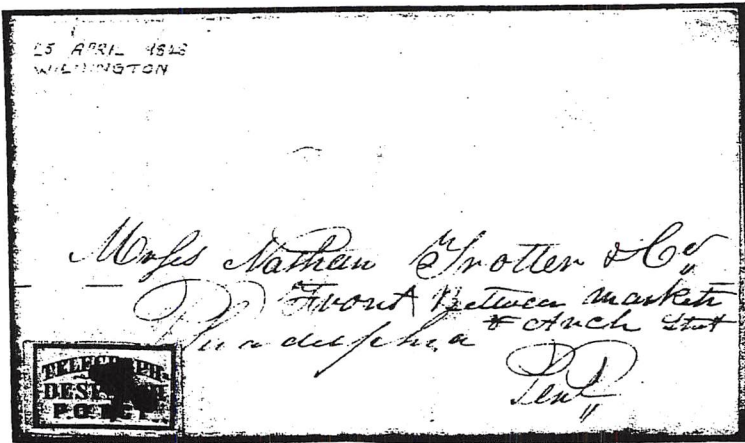 25 APRIL 1848
WILMINGTON
Messrs Nathan Trotter & Co
Front Between market
& Arch Street
Philadelphia
Penn
TELEGRAPH
DESPATCH
P.O.